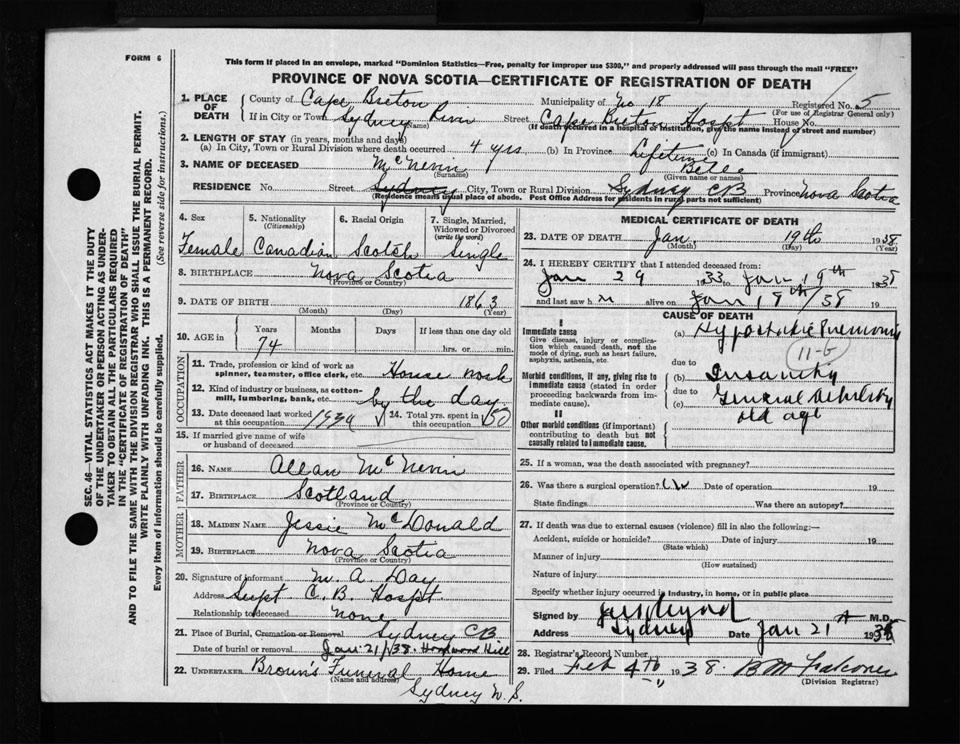 FORM 6
This form if placed in an envelope, marked "Dominion Statistics—Free, penalty for improper use $300," and properly addressed will pass through the mail "FREE"
PROVINCE OF NOVA SCOTIA—CERTIFICATE OF REGISTRATION OF DEATH
SEC. 46—VITAL STATISTICS ACT MAKES IT THE DUTY
OF THE UNDERTAKER OR PERSON ACTING AS UNDER-
TAKER TO OBTAIN ALL THE PARTICULARS REQUIRED
IN THE "CERTIFICATE OF REGISTRATION OF DEATH"
AND TO FILE THE SAME WITH THE DIVISION REGISTRAR WHO SHALL ISSUE THE BURIAL PERMIT.
WRITE PLAINLY WITH UNFADING INK. THIS IS A PERMANENT RECORD.
Every item of information should be carefully supplied. (See reverse side for instructions.)
1. PLACE OF DEATH
County of Cape Breton Municipality of No 18 Registered No. 5
(For use of Registrar General only)
If in City or Town Sydney River Street Cape Breton Hospt House No.
(Name) (If death occurred in a hospital or institution, give the name instead of street and number)
2. LENGTH OF STAY (in years, months and days)
(a) In City, Town or Rural Division where death occurred 4 yrs (b) In Province Lifetime (c) In Canada (if immigrant)
3. NAME OF DECEASED McNevin Belle
(Surname) (Given name or names)
RESIDENCE No. Street Sydney City, Town or Rural Division Sydney CB Province Nova Scotia
(Residence means usual place of abode. Post Office Address for residents in rural parts not sufficient)
4. Sex 5. Nationality (Citizenship) 6. Racial Origin 7. Single, Married, Widowed or Divorced (write the word)
Female Canadian Scotch Single
8. BIRTHPLACE Nova Scotia
(Province or Country)
9. DATE OF BIRTH 1863
(Month) (Day) (Year)
10. AGE in Years Months Days If less than one day
74 hrs. or min.
OCCUPATION
11. Trade, profession or kind of work as spinner, teamster, office clerk, etc. House work
12. Kind of industry or business, as cotton-mill, lumbering, bank, etc. by the day
13. Date deceased last worked at this occupation 1934 14. Total yrs. spent in this occupation 50
15. If married give name of wife or husband of deceased
FATHER
16. NAME Allan McNevin
17. BIRTHPLACE Scotland
(Province or Country)
MOTHER
18. MAIDEN NAME Jessie McDonald
19. BIRTHPLACE Nova Scotia
(Province or Country)
20. Signature of informant M. A. Day
Address Supt C. B. Hospt.
Relationship to deceased none
21. Place of Burial, Cremation or Removal Sydney CB
Date of burial or removal Jan 21/38 Hardwood Hill
22. UNDERTAKER Brown's Funeral Home
(Name and address) Sydney N. S.
MEDICAL CERTIFICATE OF DEATH
23. DATE OF DEATH Jan 19th 1938
(Month) (Day) (Year)
24. I HEREBY CERTIFY that I attended deceased from:
Jan 29 1933 to Jan 19th 1938
and last saw h alive on Jan 18th/38 19
CAUSE OF DEATH
I
Immediate cause
Give disease, injury or complication which caused death, not the mode of dying, such as heart failure, asphyxia, asthenia, etc.
(a) Hypostatic Pneumonia
11-G
due to
Morbid conditions, if any, giving rise to immediate cause (stated in order proceeding backwards from immediate cause).
(b) Insanity
due to
(c) General debility
old age
II
Other morbid conditions (if important) contributing to death but not causally related to immediate cause.
25. If a woman, was the death associated with pregnancy?
26. Was there a surgical operation? Date of operation 19
State findings Was there an autopsy?
27. If death was due to external causes (violence) fill in also the following:—
Accident, suicide or homicide? Date of injury 19
(State which)
Manner of injury
(How sustained)
Nature of injury
Specify whether injury occurred in industry, in home, or in public place
Signed by M.D.
Address Sydney Date Jan 21st 1938
28. Registrar's Record Number
29. Filed Feb 4th 1938.
(Division Registrar)